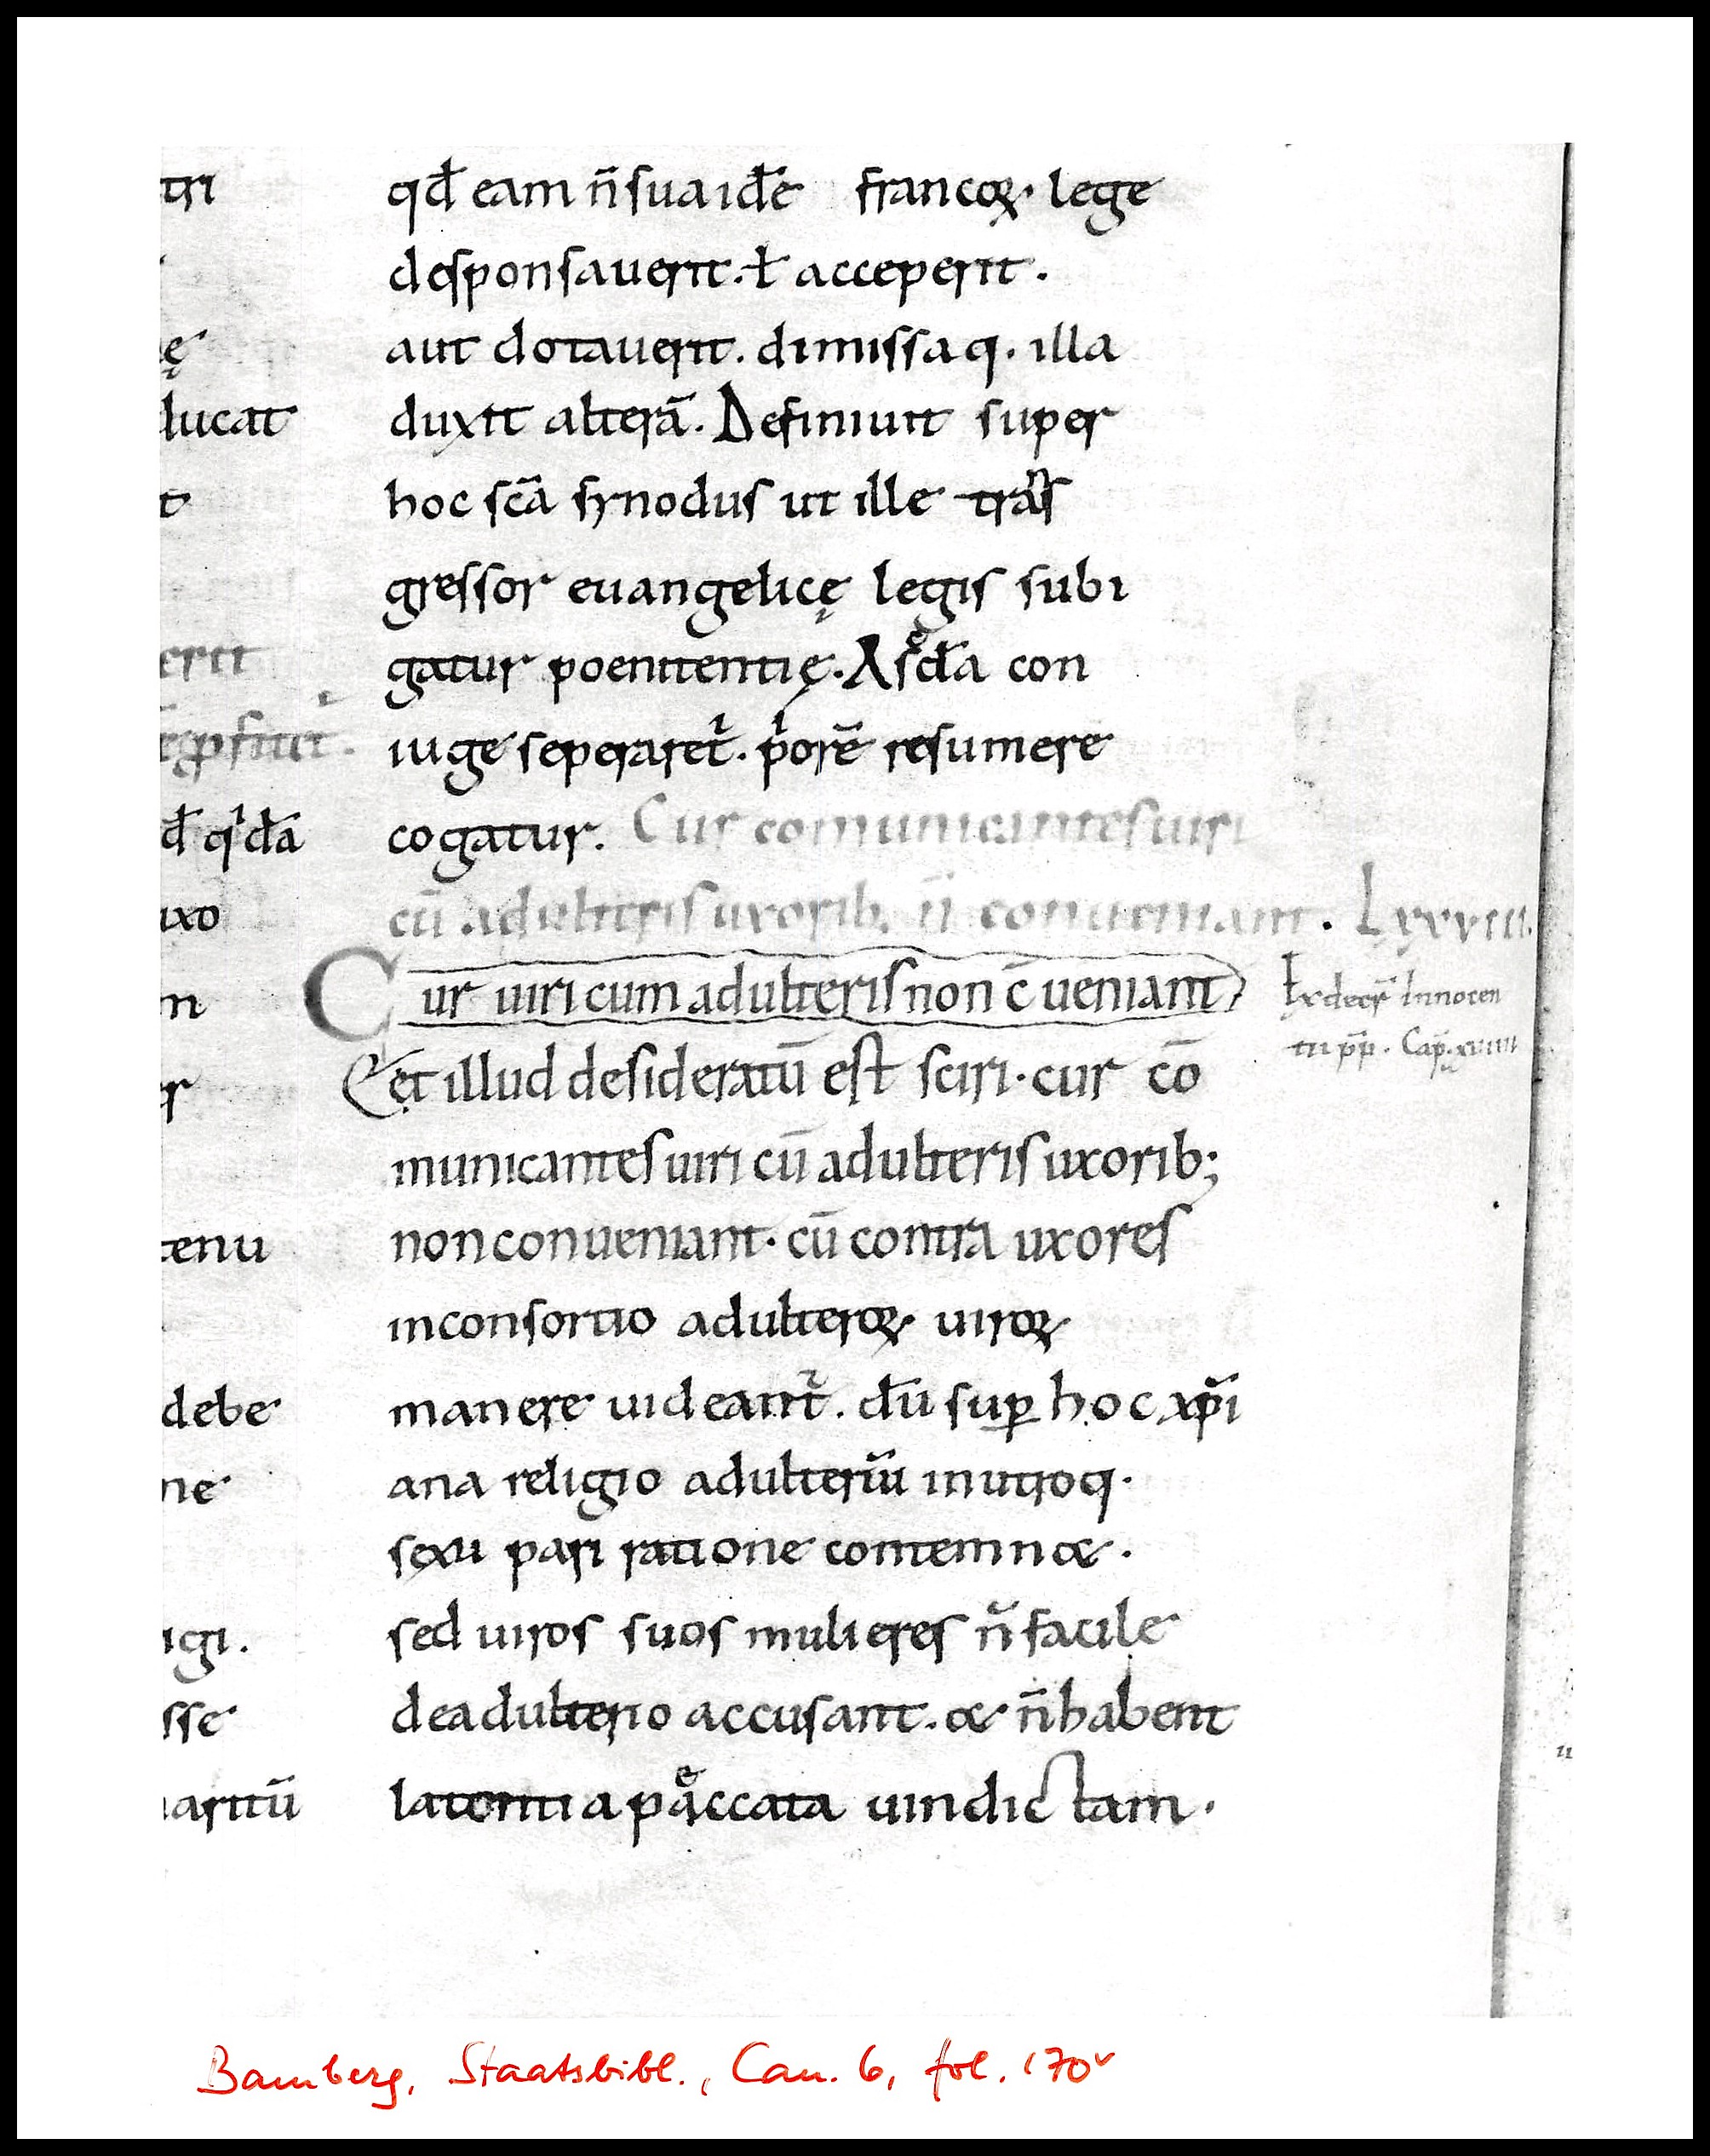 tri
ę
ducat
t
erit
d̄ qͥdā
uxo
m
er
tenu
debe
ne
igi.
sse
maritū
qđ eam n̄ sua idē francoꝝ. lege
desponsauerit. ł acceperit.
aut dotauerit. dimissaq. illa
duxit alterā. Definiuit super
hoc sc̄a synodus ut ille trāſ
gressor euangelicę legis subi
gatur poenitentię. A sc̄đa con
iuge seperaret᷑. pͥorē resumere
cogatur. Cur comunicantes uiri
cū adulteris uxorib; n̄ conueniant. Lxxviii.
Cur uiri cum adulteris non c̄ueniant
Ex decr̄ Innocen
tii pp̄. Cap̄. xuiiii
Et illud desideratū est sciri. cur cō
municantes uiri cū adulteris uxorib;
non conueniant. cū contra uxores
in consortio adulteroꝝ uiroꝝ
manere uideant᷑. dū suꝑ hoc xp̄i
ana religio adulteriū in utroq.
sexu pari ratione contemnet.
sed uiros suos mulieres n̄ facile
de adulterio accusant. & n̄ habent
latentia peccata uindictam.
Bamberg, Staatsbibl., Can. 6, fol. 170v